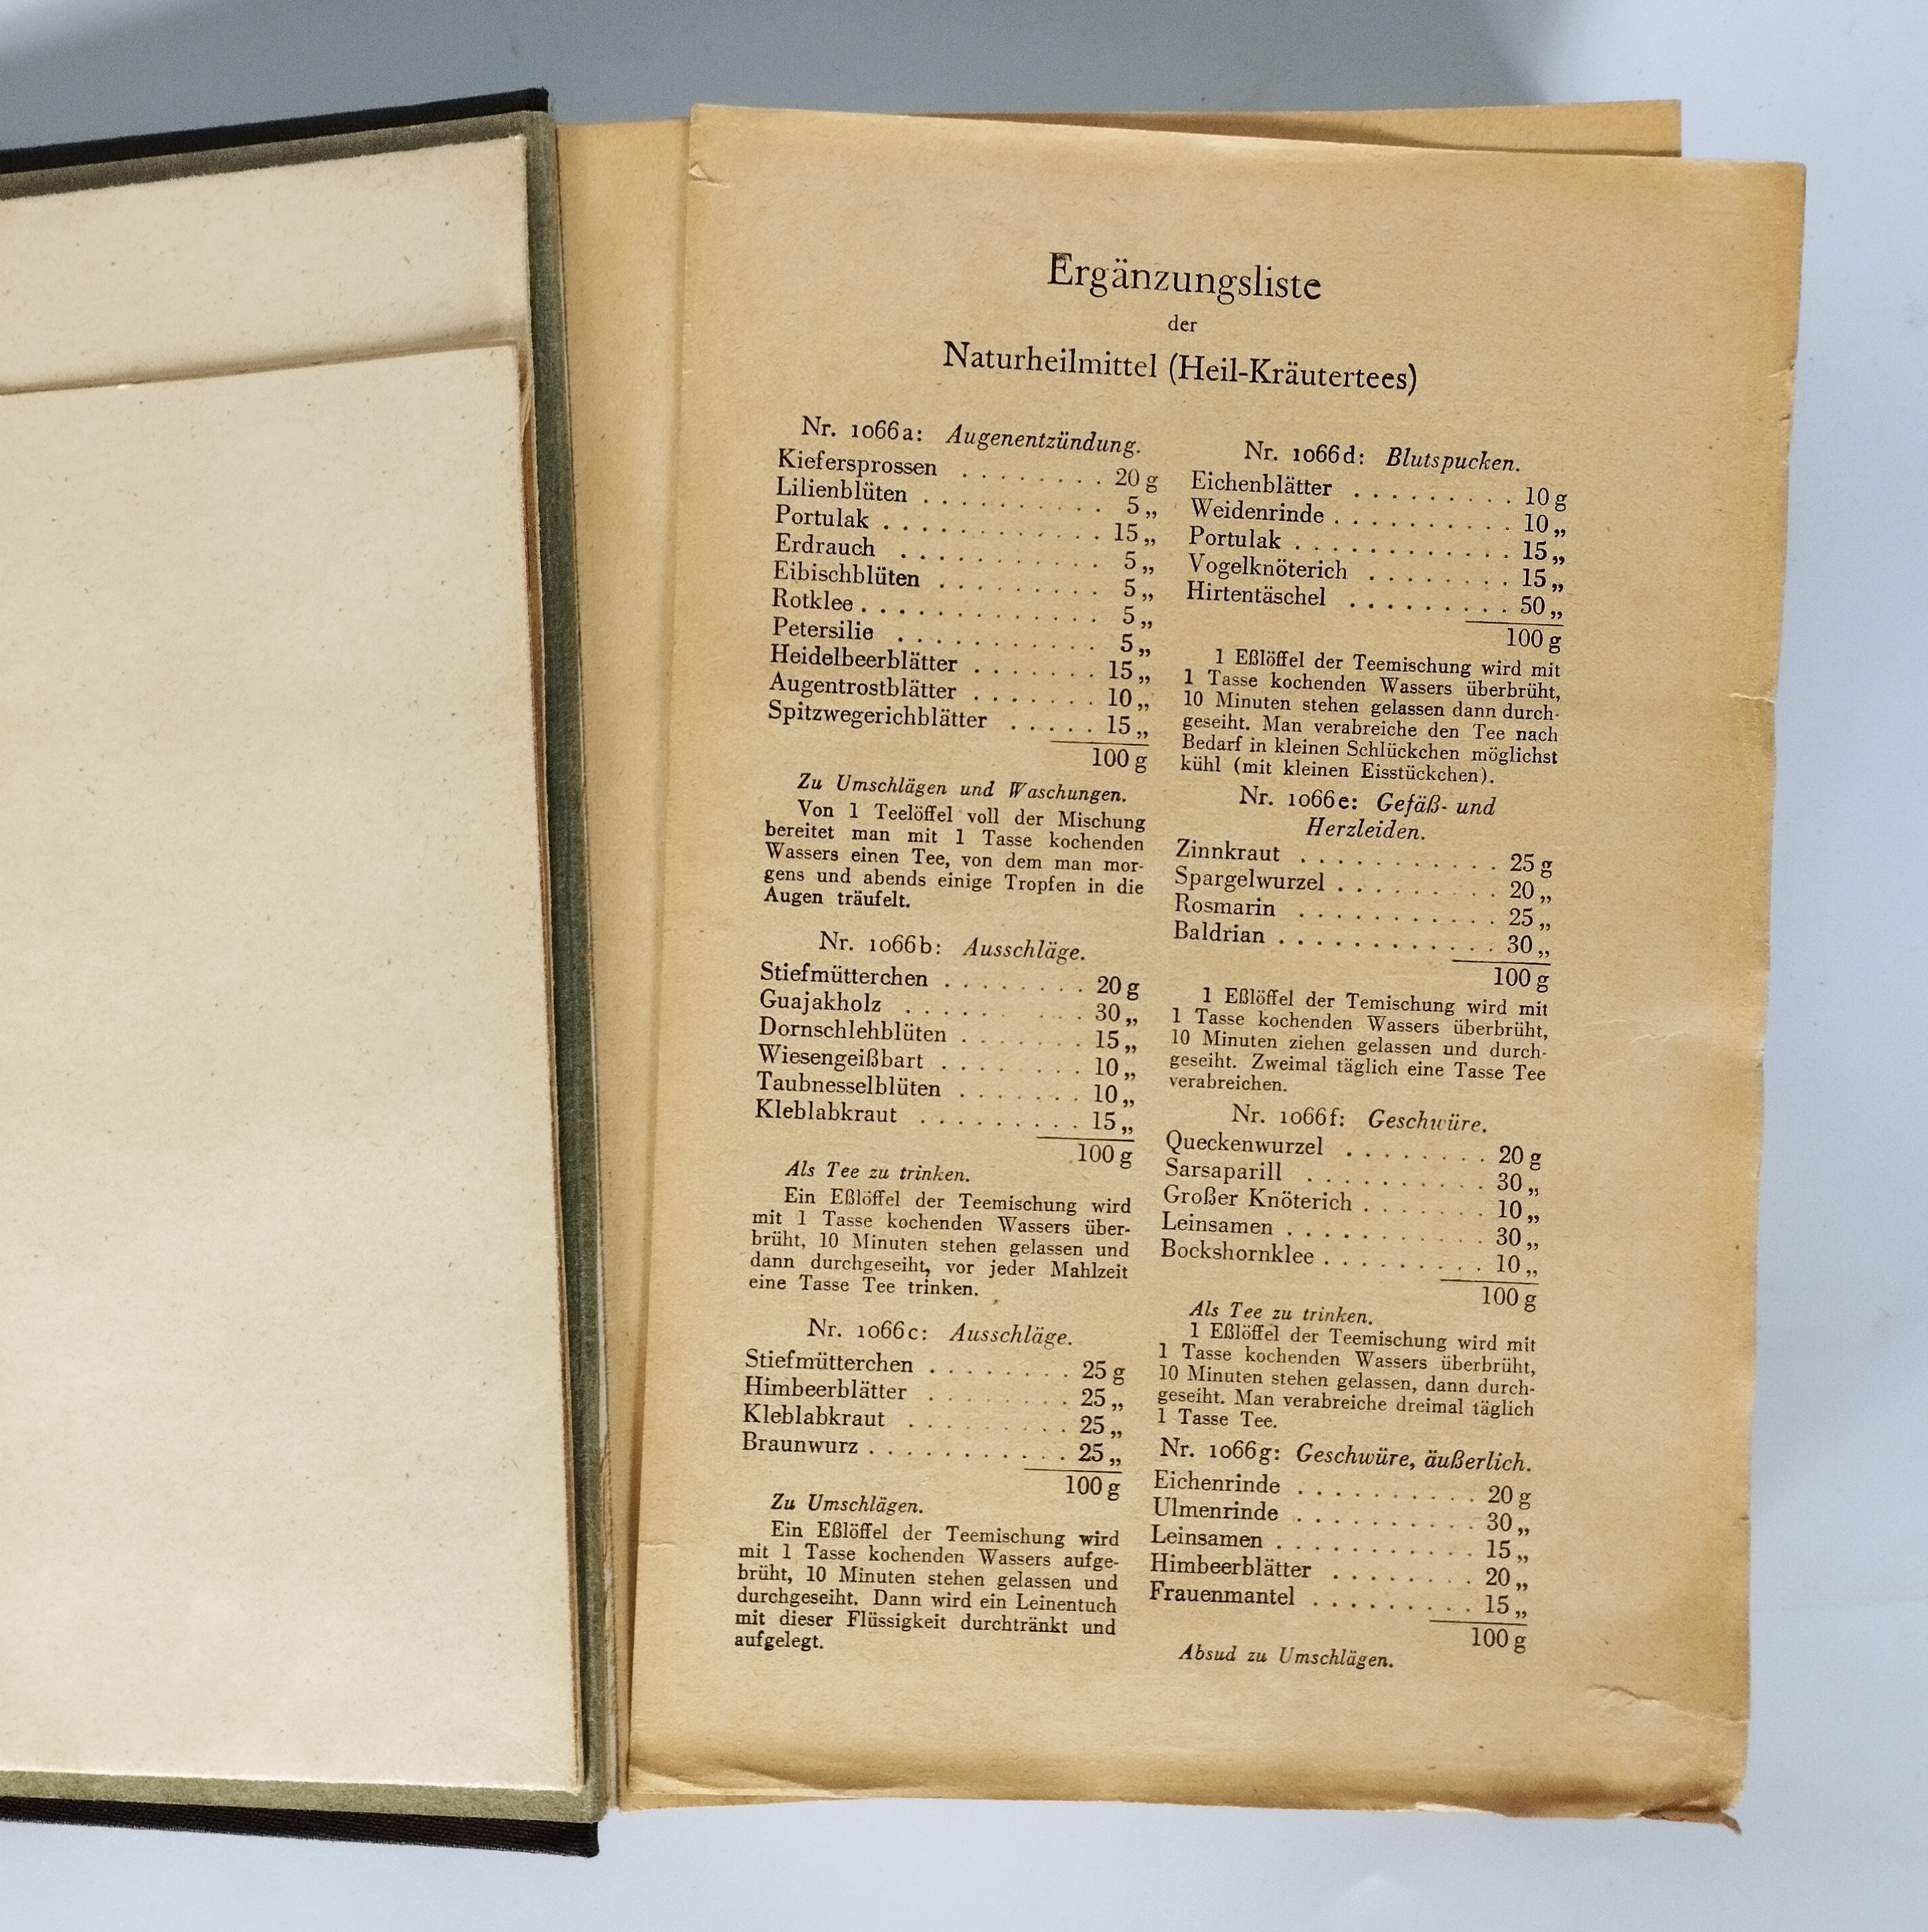 Ergänzungsliste
der
Naturheilmittel (Heil-Kräutertees)
Nr. 1066a: Augenentzündung.
Kiefersprossen . . . . . . . . 20 g
Lilienblüten . . . . . . . . . . 5 „
Portulak . . . . . . . . . . . . 15 „
Erdrauch . . . . . . . . . . . 5 „
Eibischblüten . . . . . . . . . 5 „
Rotklee . . . . . . . . . . . . . 5 „
Petersilie . . . . . . . . . . . 5 „
Heidelbeerblätter . . . . . . . 15 „
Augentrostblätter . . . . . . . 10 „
Spitzwegerichblätter . . . . . 15 „
100 g
Zu Umschlägen und Waschungen.
Von 1 Teelöffel voll der Mischung
bereitet man mit 1 Tasse kochenden
Wassers einen Tee, von dem man mor-
gens und abends einige Tropfen in die
Augen träufelt.
Nr. 1066b: Ausschläge.
Stiefmütterchen . . . . . . . . 20 g
Guajakholz . . . . . . . . . . 30 „
Dornschlehblüten . . . . . . . 15 „
Wiesengeißbart . . . . . . . . 10 „
Taubnesselblüten . . . . . . . 10 „
Kleblabkraut . . . . . . . . . 15 „
100 g
Als Tee zu trinken.
Ein Eßlöffel der Teemischung wird
mit 1 Tasse kochenden Wassers über-
brüht, 10 Minuten stehen gelassen und
dann durchgeseiht, vor jeder Mahlzeit
eine Tasse Tee trinken.
Nr. 1066c: Ausschläge.
Stiefmütterchen . . . . . . . . 25 g
Himbeerblätter . . . . . . . . 25 „
Kleblabkraut . . . . . . . . . 25 „
Braunwurz . . . . . . . . . . . 25 „
100 g
Zu Umschlägen.
Ein Eßlöffel der Teemischung wird
mit 1 Tasse kochenden Wassers aufge-
brüht, 10 Minuten stehen gelassen und
durchgeseiht. Dann wird ein Leinentuch
mit dieser Flüssigkeit durchtränkt und
aufgelegt.
Nr. 1066d: Blutspucken.
Eichenblätter . . . . . . . . . 10 g
Weidenrinde . . . . . . . . . . 10 „
Portulak . . . . . . . . . . . . 15 „
Vogelknöterich . . . . . . . . 15 „
Hirtentäschel . . . . . . . . . 50 „
100 g
1 Eßlöffel der Teemischung wird mit
1 Tasse kochenden Wassers überbrüht,
10 Minuten stehen gelassen dann durch-
geseiht. Man verabreiche den Tee nach
Bedarf in kleinen Schlückchen möglichst
kühl (mit kleinen Eisstückchen).
Nr. 1066e: Gefäß- und
Herzleiden.
Zinnkraut . . . . . . . . . . . 25 g
Spargelwurzel . . . . . . . . . 20 „
Rosmarin . . . . . . . . . . . 25 „
Baldrian . . . . . . . . . . . . 30 „
100 g
1 Eßlöffel der Temischung wird mit
1 Tasse kochenden Wassers überbrüht,
10 Minuten ziehen gelassen und durch-
geseiht. Zweimal täglich eine Tasse Tee
verabreichen.
Nr. 1066f: Geschwüre.
Queckenwurzel . . . . . . . . 20 g
Sarsaparill . . . . . . . . . . 30 „
Großer Knöterich . . . . . . . 10 „
Leinsamen . . . . . . . . . . . 30 „
Bockshornklee . . . . . . . . . 10 „
100 g
Als Tee zu trinken.
1 Eßlöffel der Teemischung wird mit
1 Tasse kochenden Wassers überbrüht,
10 Minuten stehen gelassen, dann durch-
geseiht. Man verabreiche dreimal täglich
1 Tasse Tee.
Nr. 1066g: Geschwüre, äußerlich.
Eichenrinde . . . . . . . . . . 20 g
Ulmenrinde . . . . . . . . . . 30 „
Leinsamen . . . . . . . . . . . 15 „
Himbeerblätter . . . . . . . . 20 „
Frauenmantel . . . . . . . . . 15 „
100 g
Absud zu Umschlägen.